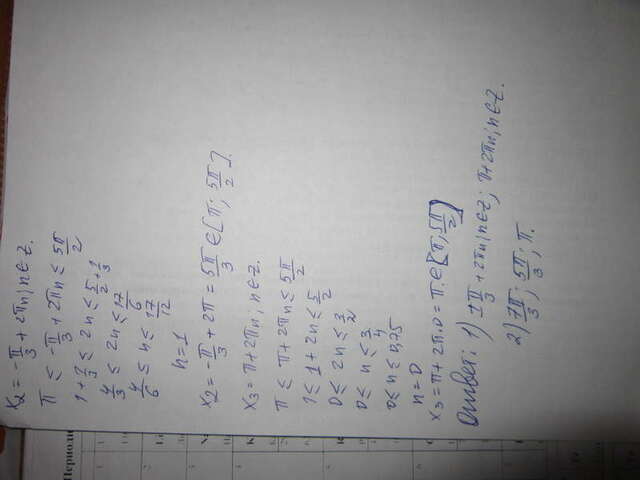 x₂ = -π/3 + 2πn; n∈Z.
π ≤ -π/3 + 2πn ≤ 5π/2
1 + 1/3 ≤ 2n ≤ 5/2 + 1/3
4/3 ≤ 2n ≤ 17/6
4/6 ≤ n ≤ 17/12
n = 1
x₂ = -π/3 + 2π = 5π/3 ∈ [π; 5π/2].
x₃ = π + 2πn; n∈Z.
π ≤ π + 2πn ≤ 5π/2
1 ≤ 1 + 2n ≤ 5/2
0 ≤ 2n ≤ 3/2
0 ≤ n ≤ 3/4
0 ≤ n ≤ 0,75
n = 0
x₃ = π + 2π·0 = π ∈ [π; 5π/2]
Ответ: 1) ±π/3 + 2πn; n∈Z; π + 2πn; n∈Z.
2) 7π/3; 5π/3; π.
Периоди